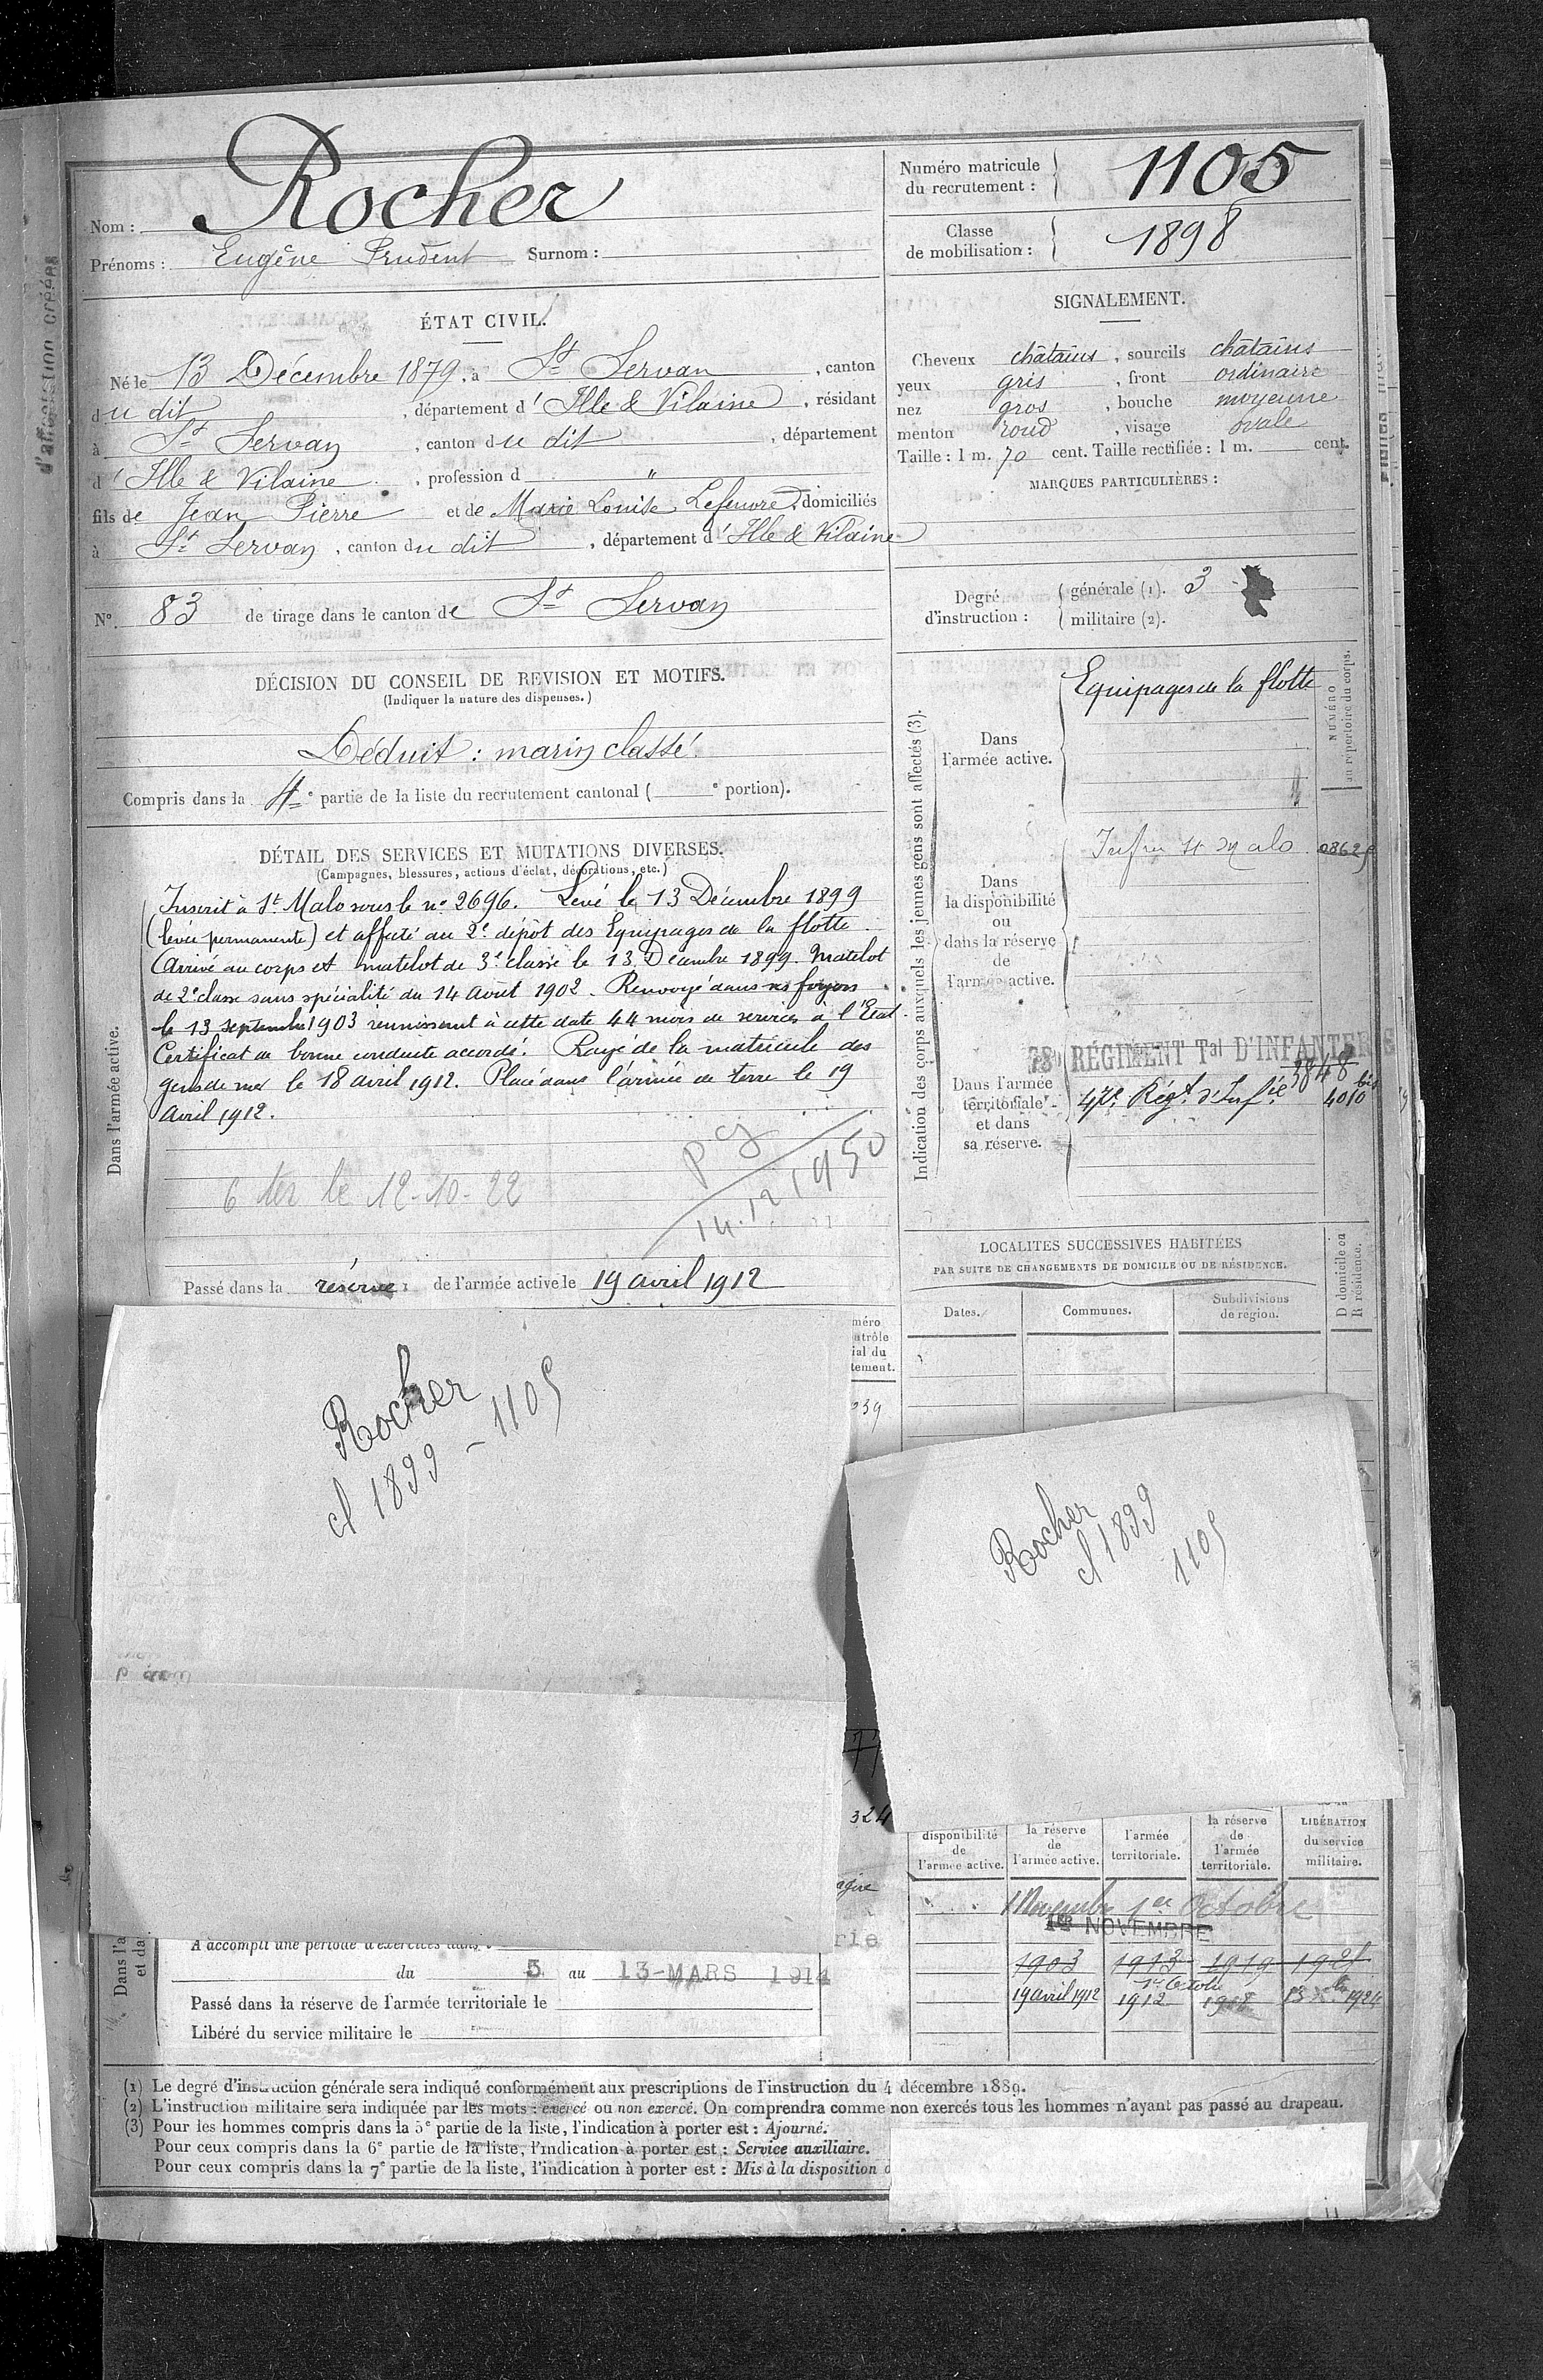 Nom : Rocher
Prénoms : Eugène Prudent Surnom :
Numéro matricule du recrutement : 1105
Classe de mobilisation : 1898
ÉTAT CIVIL.
Né le 13 Décembre 1879, à St Servan, canton
du dit, département d'Ille & Vilaine, résidant
à St Servan, canton du dit, département
d'Ille & Vilaine, profession d "
fils de Jean Pierre et de Marie Louise Lefeuvre, domiciliés
à St Servan, canton du dit, département d'Ille & Vilaine
N° 83 de tirage dans le canton de St Servan
SIGNALEMENT.
Cheveux châtains, sourcils châtains
yeux gris, front ordinaire
nez gros, bouche moyenne
menton rond, visage ovale
Taille : 1 m. 70 cent. Taille rectifiée : 1 m. cent.
MARQUES PARTICULIÈRES :
Degré d'instruction : générale (1). 3
militaire (2).
DÉCISION DU CONSEIL DE REVISION ET MOTIFS.
(Indiquer la nature des dispenses.)
Déduit : marin classé.
Compris dans la 4e partie de la liste du recrutement cantonal ( e portion).
DÉTAIL DES SERVICES ET MUTATIONS DIVERSES.
(Campagnes, blessures, actions d'éclat, décorations, etc.)
Dans l'armée active.
Inscrit à St Malo sous le n° 2696. Levé le 13 Décembre 1899
(levée permanente) et affecté au 2e dépôt des Equipages de la flotte.
Arrivé au corps et matelot de 3e classe le 13 Décembre 1899. Matelot
de 2e classe sans spécialité du 14 Août 1902. Renvoyé dans ses foyers
le 13 septembre 1903 réunissant à cette date 44 mois de services à l'Etat.
Certificat de bonne conduite accordé. Rayé de la matricule des
gens de mer le 18 avril 1912. Placé dans l'armée de terre le 19
Avril 1912.
6 ter le 12-10-22
14.12.1950
Passé dans la réserve de l'armée active le 19 avril 1912
Indication des corps auxquels les jeunes gens sont affectés (3).
NUMÉRO
au répertoire du corps.
Dans l'armée active.
Equipages de la flotte
Dans la disponibilité ou dans la réserve de l'armée active.
St Malo 08625
Dans l'armée territoriale et dans sa réserve.
78e RÉGIMENT Tal D'INFANTERIE
3848
47e Régt d'Infie 4010 bis
LOCALITÉS SUCCESSIVES HABITÉES
PAR SUITE DE CHANGEMENTS DE DOMICILE OU DE RÉSIDENCE.
Dates.
Communes.
Subdivisions de région.
D domicile ou
R résidence.
méro
ntrôle
ial du
tement.
239
Rocher
cl 1899 - 1105
Rocher
cl 1899
1105
324
disponibilité de l'armée active.
la réserve de l'armée active.
l'armée territoriale.
la réserve de l'armée territoriale.
LIBÉRATION du service militaire.
1 Novembre 1er Octobre
1er NOVEMBRE
1903 1913 1919 1925
1er Octobre
19 avril 1912 1912 1918 1924
A accompli une période d'exercices dans
du 5 au 13 MARS 1914
Passé dans la réserve de l'armée territoriale le
Libéré du service militaire le
(1) Le degré d'instruction générale sera indiqué conformément aux prescriptions de l'instruction du 4 décembre 1889.
(2) L'instruction militaire sera indiquée par les mots : exercé ou non exercé. On comprendra comme non exercés tous les hommes n'ayant pas passé au drapeau.
(3) Pour les hommes compris dans la 5e partie de la liste, l'indication à porter est : Ajourné.
Pour ceux compris dans la 6e partie de la liste, l'indication à porter est : Service auxiliaire.
Pour ceux compris dans la 7e partie de la liste, l'indication à porter est : Mis à la disposition d
d'affectation créées